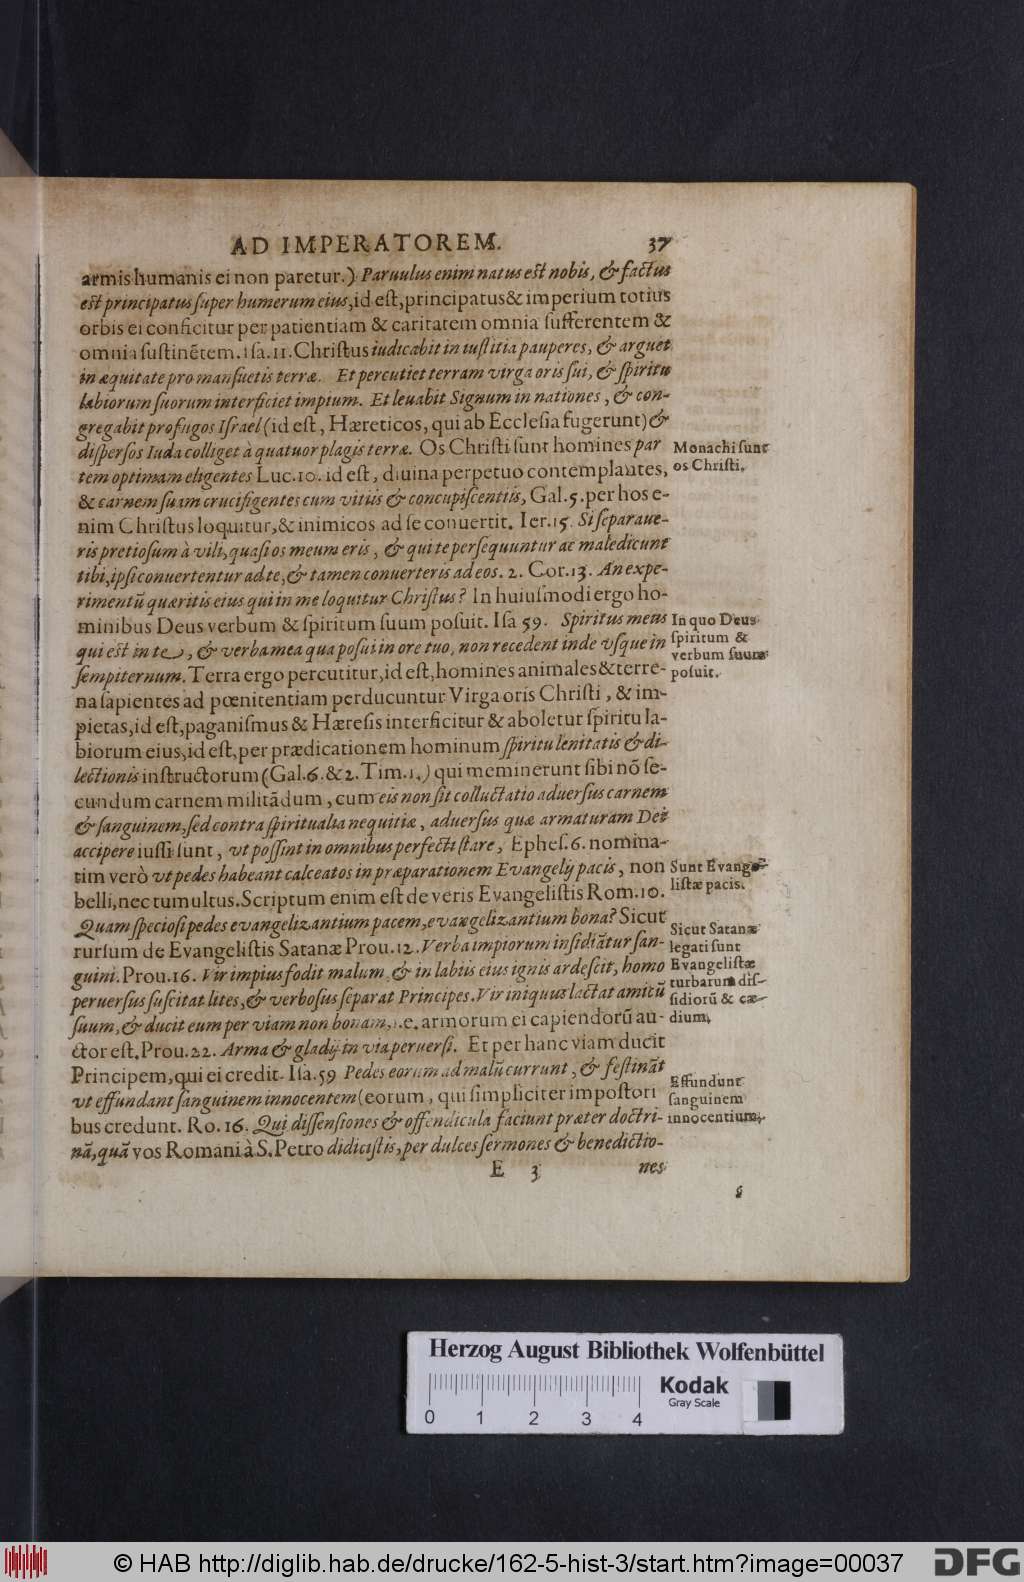 AD IMPERATOREM. 37
armis humanis ei non paretur.) Paruulus enim natus est nobis, & factus
est principatus ſuper humerum eius, id eſt, principatus & imperium totius
orbis ei conficitur per patientiam & caritatem omnia ſufferentem &
omnia ſuſtinẽtem. Iſa. 11. Chriſtus iudicabit in iuſtitia pauperes, & arguet
in æquitate pro manſuetis terræ. Et percutiet terram virga oris ſui, & ſpiritu
labiorum ſuorum interficiet impium. Et leuabit Signum in nationes, & con-
gregabit profugos Iſrael (id eſt, Hæreticos, qui ab Eccleſia fugerunt) &
diſperſos Iuda colliget à quatuor plagis terræ. Os Chriſti ſunt homines par
tem optimam eligentes Luc. 10. id eſt, diuina perpetuo contemplantes,
& carnem ſuam crucifigentes cum vitiis & concupiſcentiis, Gal. 5. per hos e-
nim Chriſtus loquitur, & inimicos ad ſe conuertit. Ier. 15. Si ſeparaue-
ris pretioſum à vili, quaſi os meum eris, & qui te perſequuntur ac maledicunt
tibi, ipſi conuertentur ad te, & tamen conuerteris ad eos. 2. Cor. 13. An expe-
rimentũ quæritis eius qui in me loquitur Chriſtus? In huiuſmodi ergo ho-
minibus Deus verbum & ſpiritum ſuum poſuit. Iſa 59. Spiritus meus
qui eſt in te, & verba mea qua poſui in ore tuo, non recedent inde vſque in
ſempiternum. Terra ergo percutitur, id eſt, homines animales & terre-
na ſapientes ad pœnitentiam perducuntur Virga oris Chriſti, & im-
pietas, id eſt, paganiſmus & Hæreſis interficitur & aboletur ſpiritu la-
biorum eius, id eſt, per prædicationem hominum ſpiritu lenitatis & di-
lectionis inſtructorum (Gal. 6. & 2. Tim. 1.) qui meminerunt ſibi nõ ſe-
cundum carnem militãdum, cum eis non ſit colluctatio aduerſus carnem
& ſanguinem, ſed contra ſpiritualia nequitiæ, aduerſus quæ armaturam Dei
accipere iuſſi ſunt, vt poſſint in omnibus perfecti ſtare, Epheſ. 6. nomina-
tim verò vt pedes habeant calceatos in præparationem Evangelij pacis, non
belli, nec tumultus. Scriptum enim eſt de veris Evangeliſtis Rom. 10.
Quam ſpecioſi pedes evangelizantium pacem, evangelizantium bona? Sicut
rurſum de Evangeliſtis Satanæ Prou. 12. Verba impiorum inſidiãtur ſan-
guini. Prou. 16. Vir impius fodit malum, & in labiis eius ignis ardeſcit, homo
peruerſus ſuſcitat lites, & verboſus ſeparat Principes. Vir iniquus lactat amicũ
ſuum, & ducit eum per viam non bonam, i.e. armorum ei capiendorũ au-
ctor eſt. Prou. 22. Arma & gladij in via peruerſi. Et per hanc viam ducit
Principem, qui ei credit. Iſa. 59 Pedes eorum ad malũ currunt, & feſtinãt
vt effundant ſanguinem innocentem (eorum, qui ſimpliciter impoſtori
bus credunt. Ro. 16. Qui diſſenſiones & offendicula faciunt præter doctri-
nã, quã vos Romani à S. Petro didiciſtis, per dulces ſermones & benedictio-
E 3 nes
Monachi ſunt
os Chriſti.
In quo Deus
ſpiritum &
verbum ſuum
poſuit.
Sunt Evange-
liſtæ pacis.
Sicut Satanæ
legati ſunt
Evangeliſtæ
turbarum diſ-
ſidiorũ & cæ-
dium.
Effundunt
ſanguinem
innocentium.
Herzog August Bibliothek Wolfenbüttel
Kodak
Gray Scale
0 1 2 3 4
© HAB http://diglib.hab.de/drucke/162-5-hist-3/start.htm?image=00037
DFG